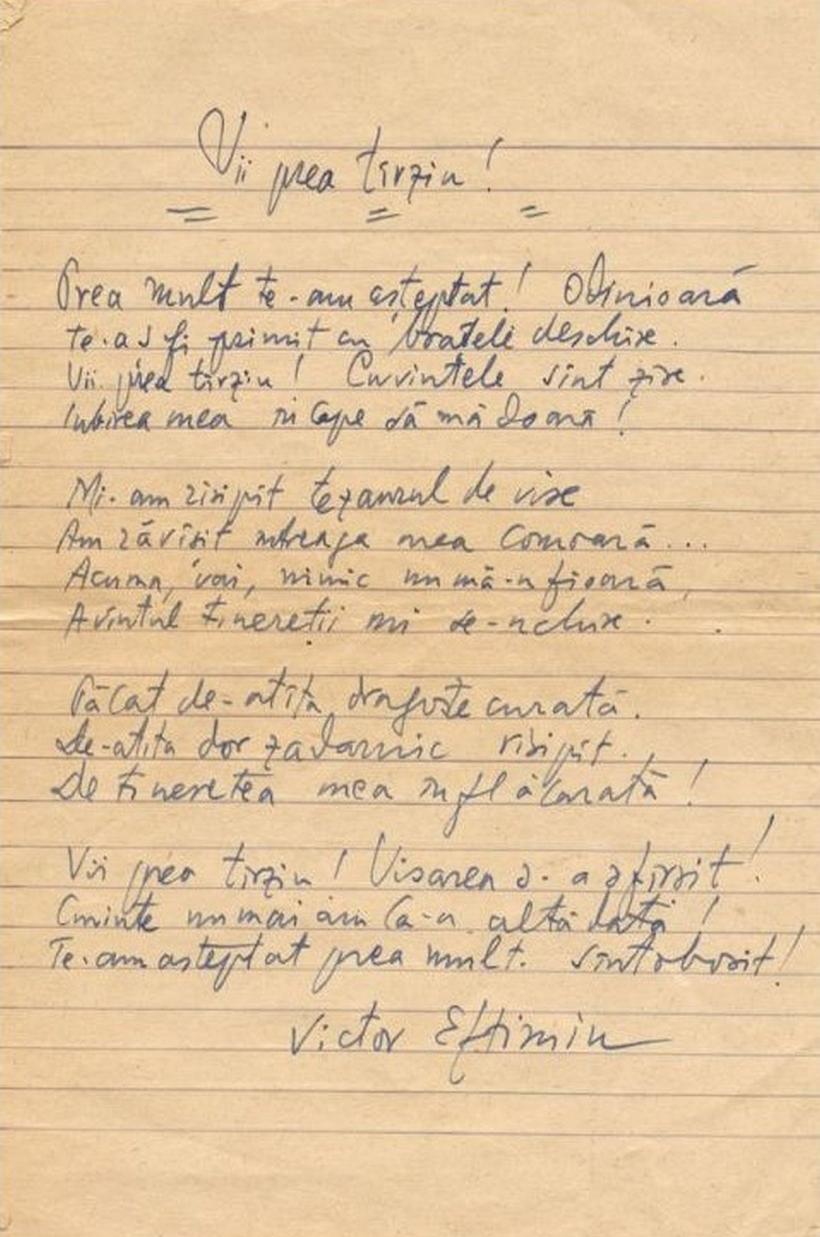 Vii prea tîrziu!
Prea mult te-am așteptat! Odinioară
te-aș fi primit cu brațele deschise.
Vii prea tîrziu! Cuvintele sînt zise.
Iubirea mea începe să mă doară!
Mi-am risipit tezaurul de vise
Am răvășit întreaga mea comoară...
Acuma, vai, nimic nu mă-nfioară,
Avîntul tinereții mi se-nchise.
Păcat de-atîta dragoste curată.
De-atîta dor zadarnic risipit.
De tinerețea mea înflăcărată!
Vii prea tîrziu! Visarea s-a sfîrșit!
Cuvinte nu mai am ca-n altă dată!
Te-am așteptat prea mult. Sînt obosit!
Victor Eftimiu